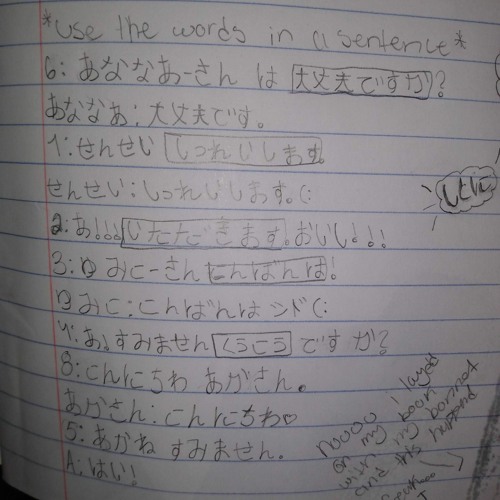 *use the words in a sentence*
6: あななあーさん は 大丈夫ですか?
あななあ: 大丈夫です。
1: せんせい しつれいします。
せんせい: しつれいします。(:
2: あ!!! いただきます。おいし!!!
3: ゆみこーさん こんばんは!
ゆみこ: こんばんは (:
4: あ! すみません くうこう ですか?
8: こんにちわ あかさん。
あかさん: こんにちわ
5: あかね すみません。
A: はい!
noooo i layed
on my book
with my
and this happend